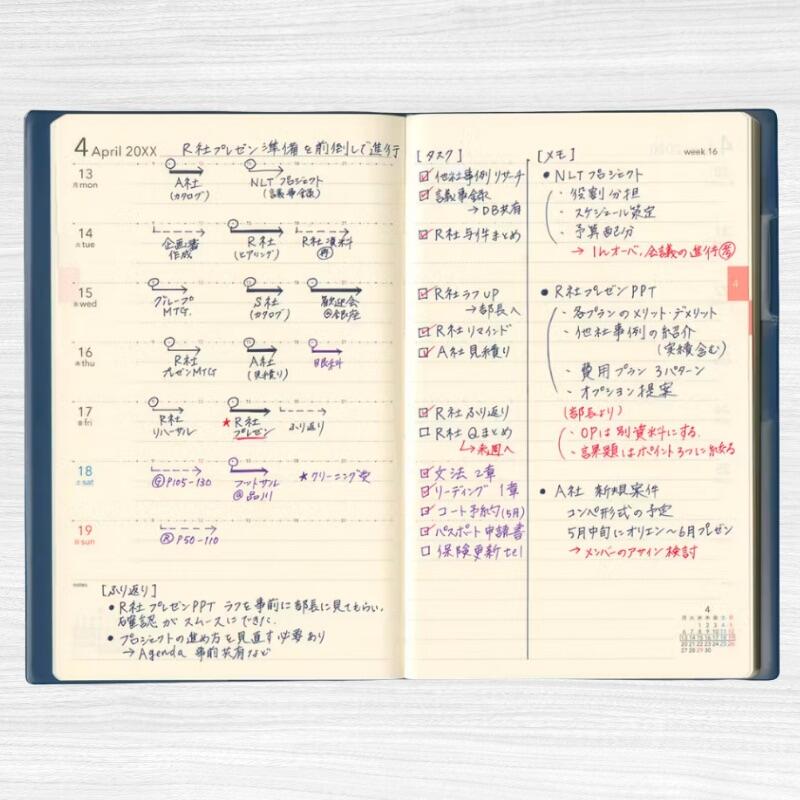 4 April 20XX R社プレゼン準備を前倒しで進行
13
月 mon
A社
(カタログ)
NLTプロジェクト
(言義事録)
14
火 tue
企画書
作成
R社
(ヒアリング)
R社資料
15
水 wed
グループ
MTG.
S社
(カタログ)
歓迎会
@銀座
16
木 thu
R社
プレゼンMTG
A社
(見積り)
眼科
17
金 fri
R社
リハーサル
★R社
プレゼン
ふり返り
18
土 sat
P105-130
フットサル
@品川
★クリーニング受
19
日 sun
Ⓡ P50-110
notes
[ふり返り]
• R社プレゼンPPT ラフを事前に部長に見てもらい、
確認がスムースにできた。
• プロジェクトの進め方を見直す必要あり
→ Agenda 事前共有など
[タスク]
☑ 他社事例リサーチ
☑ 議事録
→DB共有
☑ R社与件まとめ
☑ R社ラフUP
→部長へ
☑ R社リマインド
☑ A社見積り
☑ R社ふり返り
□ R社Qまとめ
→来週へ
☑ 文法2章
☑ リーディング 1章
☑ コート予約(5月)
☑ パスポート申請書
□ 保険更新tel
[メモ]
week 16
• NLTプロジェクト
・役割分担
・スケジュール策定
・予算配分
→1hオーバ、会議の進行
• R社プレゼンPPT
・各プランのメリット・デメリット
・他社事例の紹介
(実績含む)
・費用プラン 3パターン
・オプション提案
(部長より)
・OPは別資料にする.
・課題はポイント3つに絞る
• A社 新規案件
コンペ形式の予定
5月中旬にオリエン〜6月プレゼン
→メンバーのアサイン検討
4
4
月 火 水 木 金 土 日
1 2 3 4 5
6 7 8 9 10 11 12
13 14 15 16 17 18 19
20 21 22 23 24 25 26
27 28 29 30